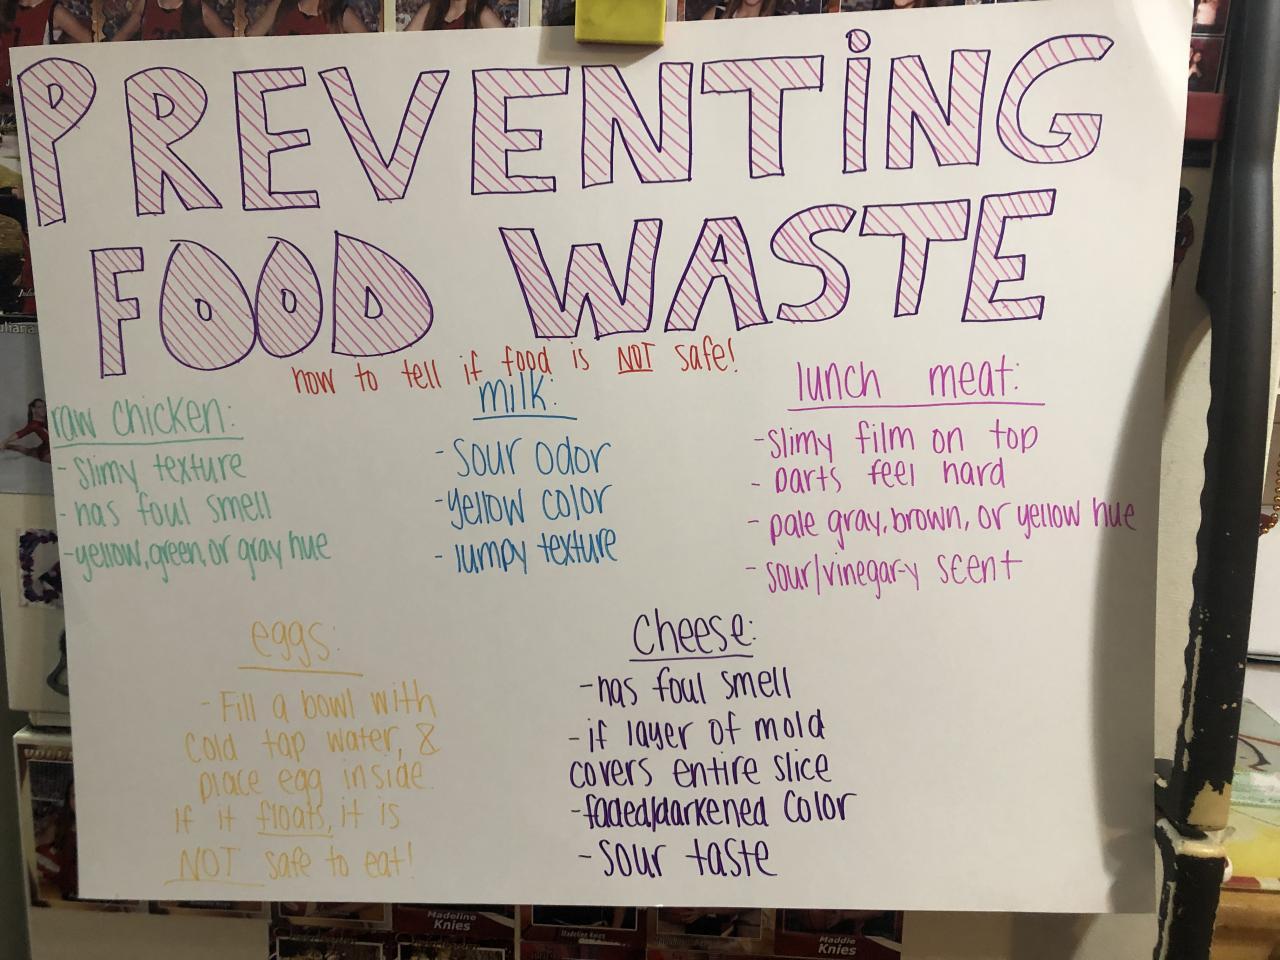 PREVENTiNG
FOOD WASTE
how to tell if food is NOT safe!
raw chicken:
- slimy texture
- has foul smell
- yellow, green, or gray hue
milk:
- sour odor
- yellow color
- lumpy texture
lunch meat:
- slimy film on top
- parts feel hard
- pale gray, brown, or yellow hue
- sour/vinegar-y scent
eggs:
- Fill a bowl with
cold tap water, &
place egg inside.
If it floats, it is
NOT safe to eat!
cheese:
- has foul smell
- if layer of mold
covers entire slice
- faded/darkened color
- sour taste
Madeline
Knies
Madeline Knies
Maddie
Knies